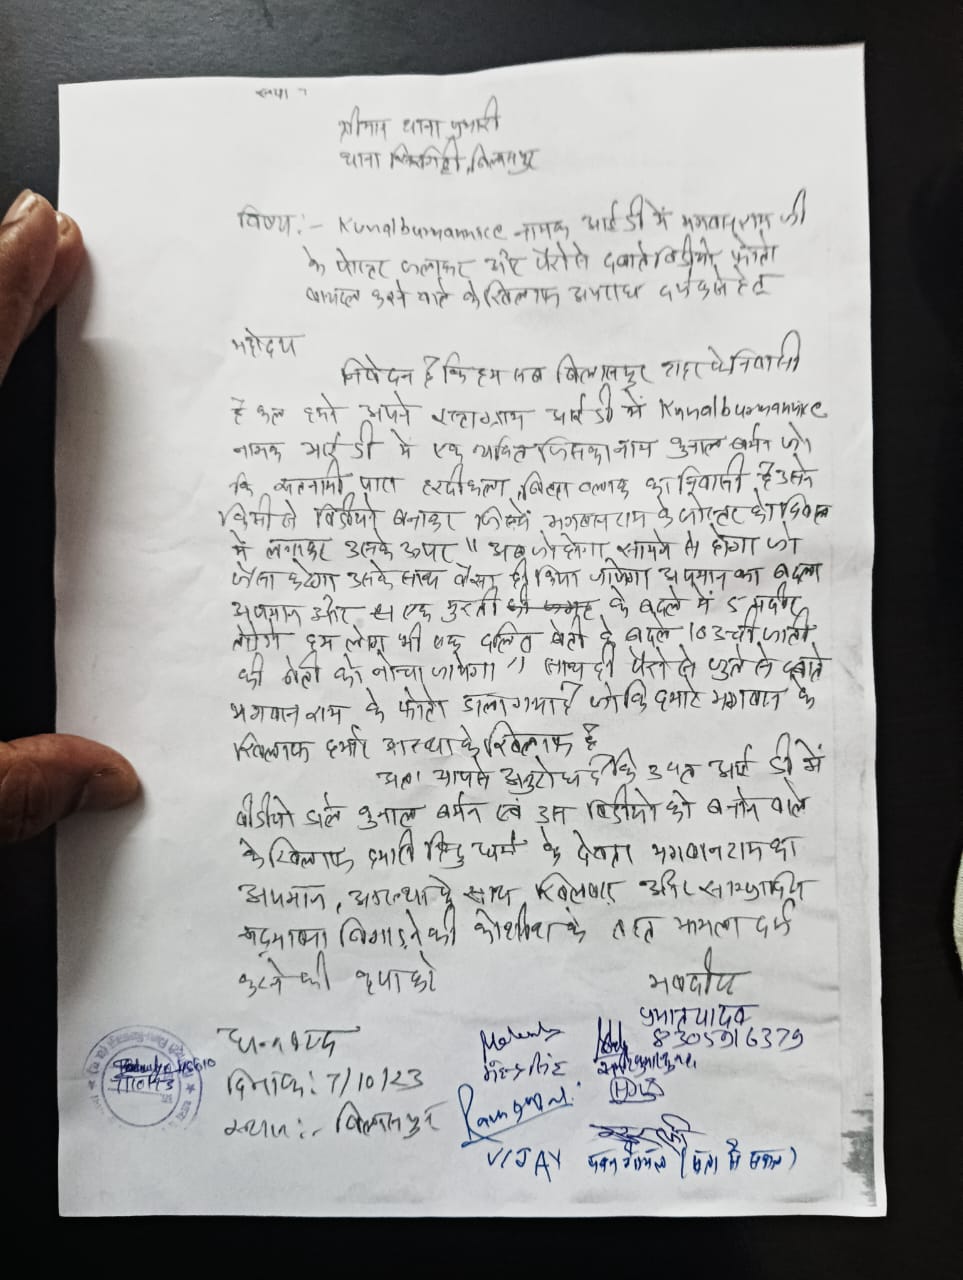 श्रीमान थाना प्रभारी
थाना बिलासपुर
विषय:- Kunalburmannice नामक आई डी में भगवान राम जी
के पोस्टर जलाकर और पैरो से दबाते विडीयो फोटो
वायरल करने वाले के खिलाफ अपराध दर्ज करने हेतु
महोदय
निवेदन है कि हम सब बिलासपुर शहर के निवासी
है कल हमने अपने आई डी में Kunalburmannice
नामक आई डी में एक व्यक्ति जिसका नाम कुनाल बर्मन जो
कि सतनामी पारा हरदीकला, बिल्हा ब्लाक का निवासी है उसने
किसी से विडीयो बनाकर जिसमें भगवान राम के पोस्टर को दिवाल
में लगाकर उसके ऊपर " अब जो होगा सामने से होगा जो
जैसा करेगा उसके साथ वैसा ही किया जायेगा अपमान का बदला
अपमान और एक मुरती के बदले में 5
हम लोग भी एक दलित बेटी के बदले 10 उच्ची जाती
की बेटी को नोन्चा जायेगा " साथ ही पैरो से जुते से दबाते
भगवान राम के फोटो डाला गया है जो कि हमारे भगवान के
खिलाफ हमारे आस्था के खिलाफ है
अतः आपसे अनुरोध है कि उक्त आई डी में
वीडीयो डाले कुनाल बर्मन एवं उस विडीयो को बनाने वाले
के खिलाफ हमारे हिन्दु धर्म के देवता भगवान राम का
अपमान, आस्था के साथ खिलवाड़ और साम्प्रदायिक
सद्भावना बिगाड़ने की कोशीश के तहत मामला दर्ज
करने की कृपा करे
भवदीय
धन्यवाद
प्रभात यादव
8305916379
दिनांक: 7/10/23
स्थान:- बिलासपुर
महेन्द्र सिंह
VIJAY
7/10/23